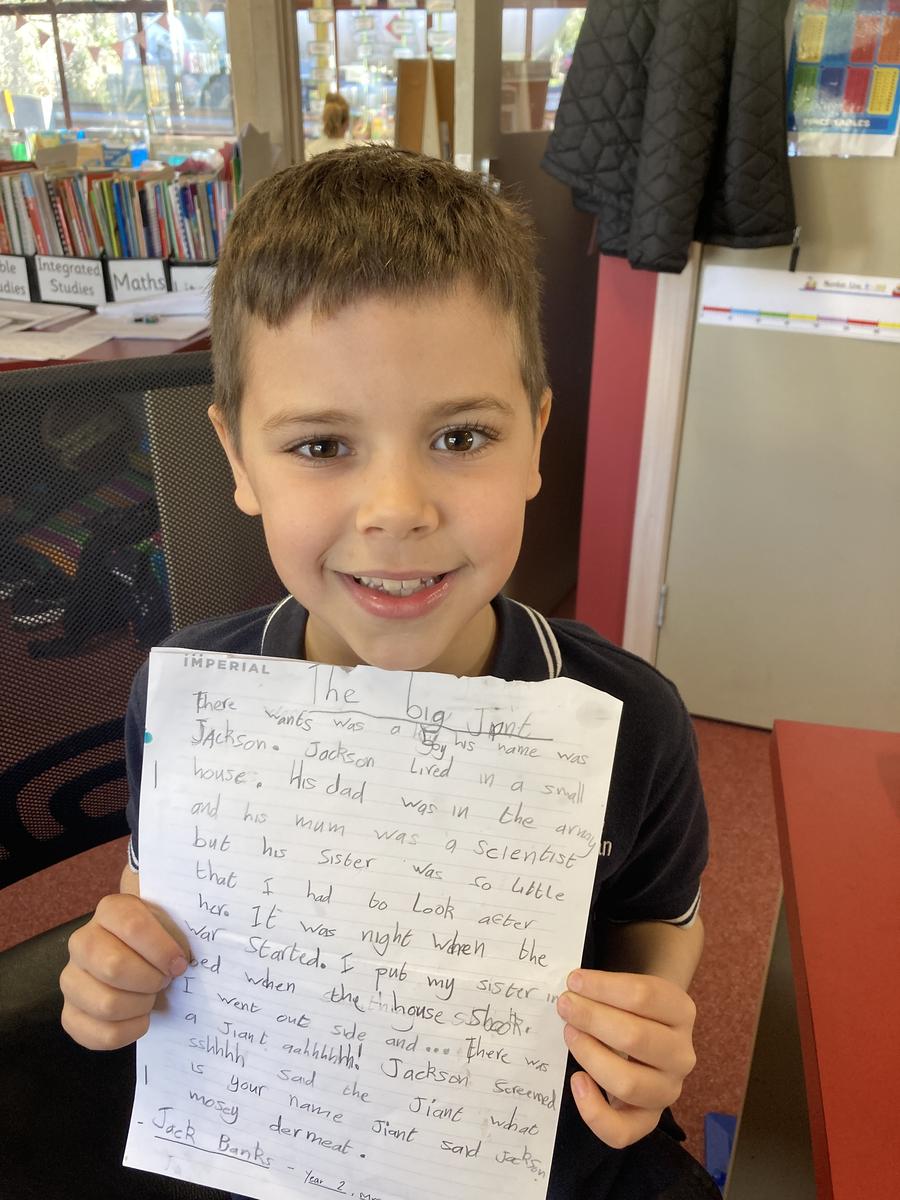 Integrated
Studies
Maths
IMPERIAL
The big Jiant
there wants was a boy his name was
JAckson. Jackson Lived in a small
house. His dad was in the army
and his mum was a scientist
but his sister was so little
that I had to Look after
her. It was night when the
war Started. I put my sister in
bed when the house shook.
I went out side and... there was
a Jiant aahhhhhh! Jackson screemed
sshhhh said the Jiant what
is your name Jiant said Jackson
mosey dermeat.
- Jack Banks - Year 2,